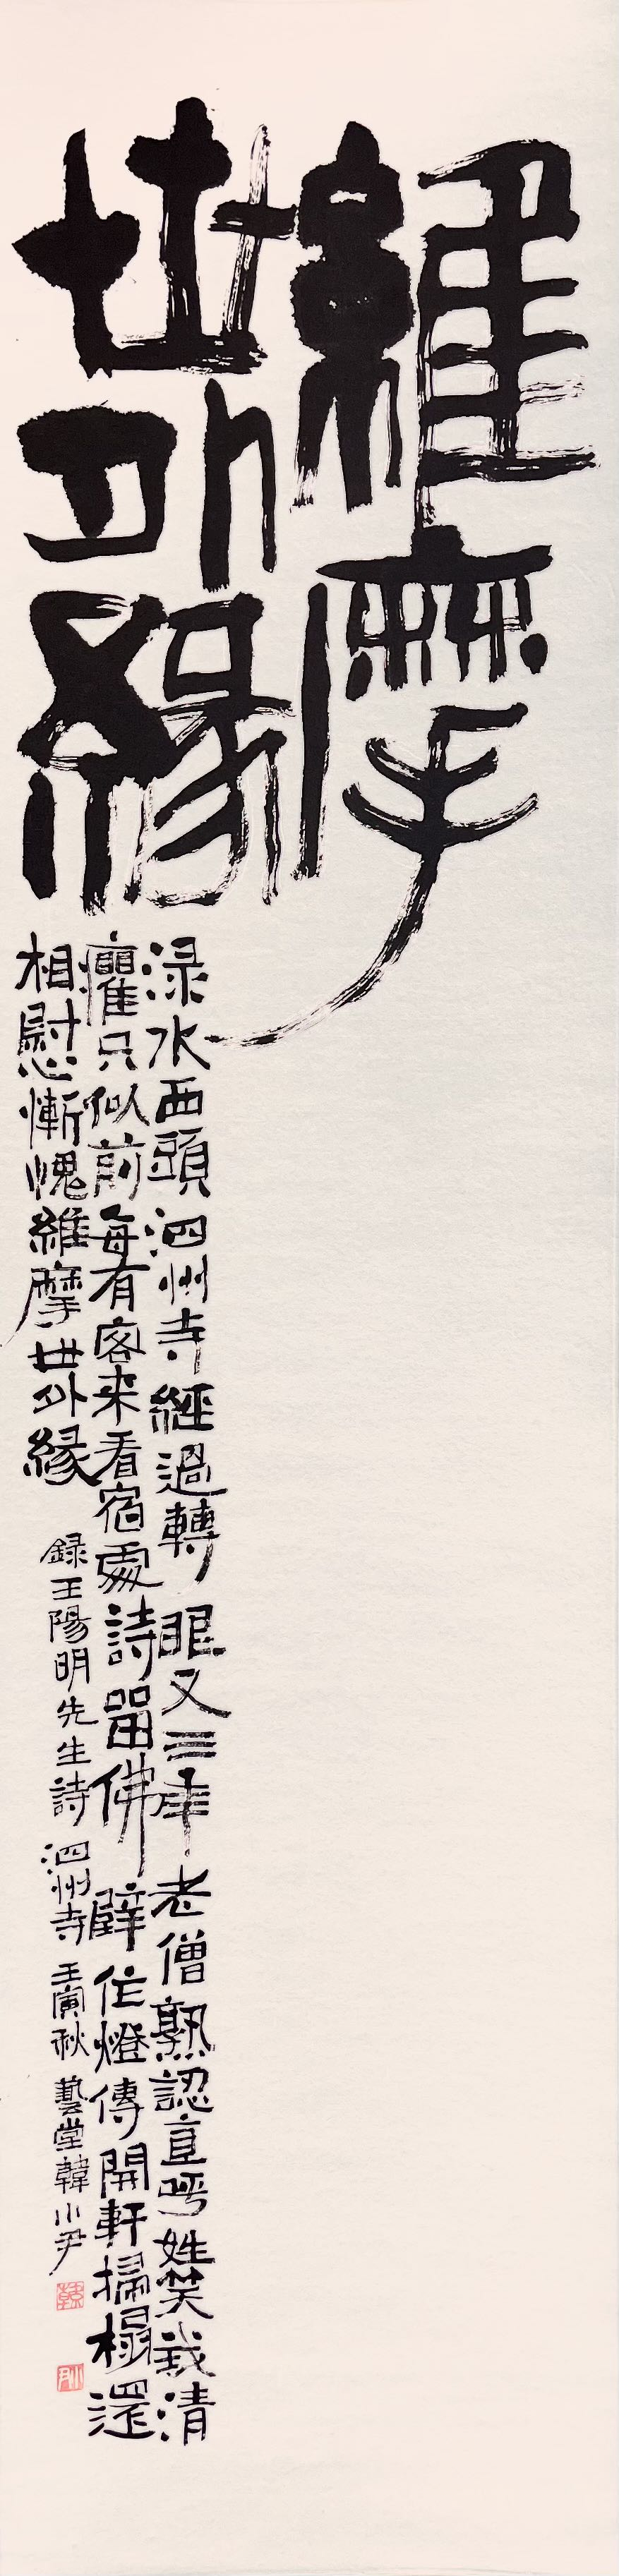 維摩
世外緣
渌水西頭泗州寺經過轉眼又三年老僧熟認直呼姓笑我清
癯只似前每有客来看宿處詩留佛壁作燈傳開軒掃榻還
相慰慚愧維摩世外緣
録王陽明先生詩泗州寺壬寅秋藝堂韓小尹
韓
小尹